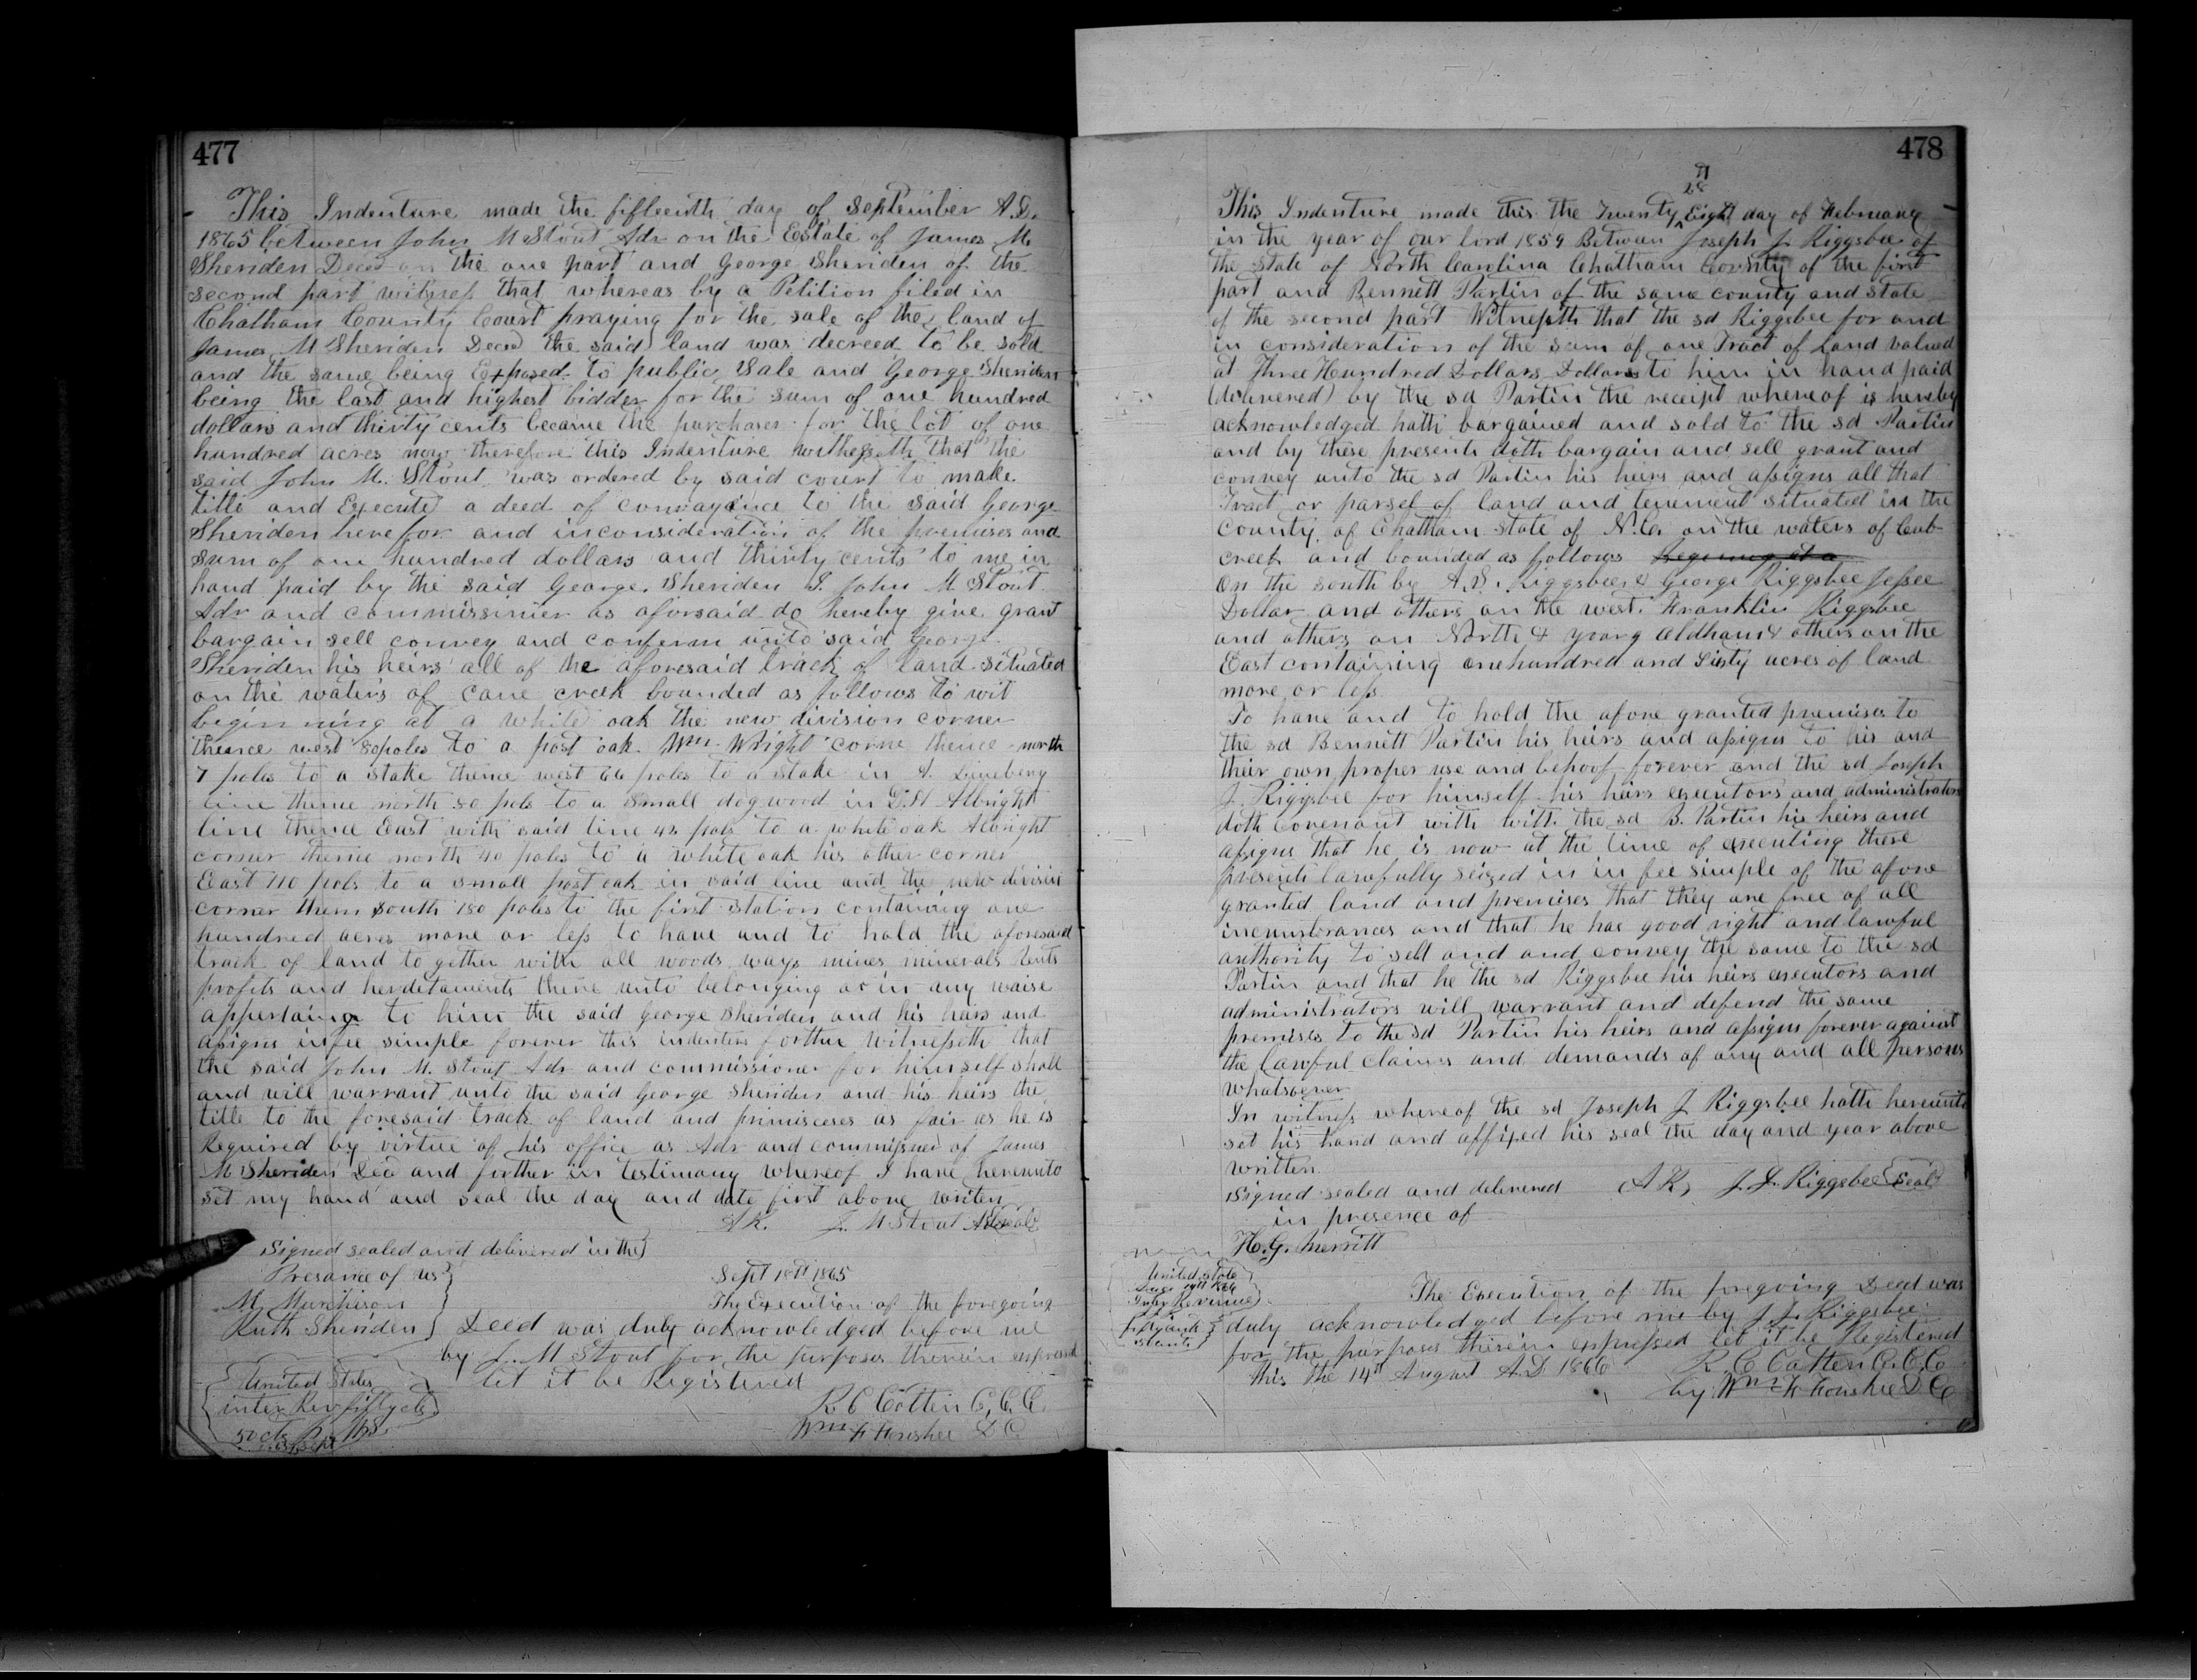 477
This Indenture made the fifteenth day of September A.D.
1865 between John M Stout Adr on the Estate of James M
Sheriden Decd on the one part and George Sheriden of the
second part witness that whereas by a Petition filed in
Chatham County Court praying for the sale of the land of
James M Sheriden Decd the said land was decreed to be sold
and the same being Exposed to public Sale and George Sheriden
being the last and highest bidder for the sum of one hundred
dollars and thirty cents became the purchaser for the lot of one
hundred acres now therefore this Indenture witnesseth that the
said John M. Stout was ordered by said court to make
title and Execute a deed of convayance to the said George
Sheriden herefor and inconsideration of the premises and
sum of one hundred dollars and thirty cents to me in
hand paid by the said George Sheriden I John M Stout
Adr and commissinier as aforsaid do hereby give grant
bargain sell convey and conferm unto said George
Sheriden his heirs all of the aforesaid track of land situated
on the waters of cane creek bounded as follows to wit
beginning at a white oak the new division corner
thence west 80 poles to a post oak Wm Wright corne thence north
7 poles to a stake thence west 66 poles to a stake in A.
line thence north 50 pols to a small dogwood in D.H Albright
line thence East with said line 42 pols to a white oak Albright
corner thence north 40 poles to a white oak his other corner
East 110 pols to a small post oak in said line and the new division
corner them South 180 poles to the first station containing one
hundred acres more or less to have and to hold the aforesaid
track of land to gether with all woods ways mines minerals rents
profits and herditaments there unto belonging or in any waise
appertaing to him the said George Sheriden and his hairs and
assigns infee simple forever this indenture forther witnesseth that
the said John M. Stout Adr and commissioner for himself shall
and will warrant unto the said George Sheriden and his heirs the
title to the foresaid track of land and primiseses as fair as he is
Required by virtue of his office as Adr and commissner of James
M Sheriden Dec and forther in testimany whereof I have hereunto
set my hand and seal the day and date first above writen
J. M Stout Adr Seal
Signed sealed and delivered in the
Presance of us
M. Murchison
Ruth Sheriden
Sept 18th 1865
The Execution of the foregoing
Deed was duly acknowledged before me
by J. M Stout for the purposes therein expressd
let it be Registered
R C Cotten C.C.C.
Wm F Foushee D.C.
United States
inter Rev fifty cts
50 cts
478
28
This Indenture made this the Twenty Eight day of Februany
in the year of our lord 1859 Between Joseph J. Riggsbee of
the state of North Carolina Chatham County of the first
part and Bennett Partin of the same county and state
of the second part Witnesseth that the sd Riggsbee for and
in consideration of the sum of one Tract of Land valued
at Three Hundred Dollars Dollars to him in hand paid
(delivered) by the sd Partin the receipt whereof is hereby
acknowledged hath bargained and sold to the sd Partin
and by these presents doth bargain and sell grant and
convey unto the sd Partin his heirs and assigns all that
Tract or parsel of land and tenement situated in the
County of Chatham State of N.Ca on the waters of Cub
creek and bounded as follows Begining at a
On the south by A.D. Riggsbee & George Riggsbee Jessee
Dollar and others on the west. Franklin Riggsbee
and others on North & Young Oldham & others on the
East containing one hundred and Sixty acres of land
more or less
To have and to hold the afore granted premises to
the sd Bennett Partin his heirs and assigns to his and
their own proper use and behoof forever and the sd Joseph
J. Riggsbee for himself his heirs executors and administrators
doth Covenant with with the sd B. Partin his heirs and
assigns that he is now at the time of executing these
presents lawfully seized in in fee simple of the afore
granted land and premises that they are free of all
incumbrances and that he has good right and lawful
authority to sell and and convey the same to the sd
Partin and that he the sd Riggsbee his heirs executors and
administrators will warrant and defend the same
premises to the sd Partin his heirs and assigns forever against
the lawful claims and demands of any and all persons
whatsoever
In witness whereof the sd Joseph J Riggsbee hath hereunto
set his hand and affixed his seal the day and year above
written
Signed sealed and delivered J. J. Riggsbee Seal
in presence of
H. G. Merritt
United State
Inter Revenue
The Execution of the foregoing Deed was
duly acknowledged before me by J. J. Riggsbee
for the purposes therein expressed let it be Registered
this the 14th August A.D. 1866 R. C Cotten C.C.C
by Wm F Foushee D C